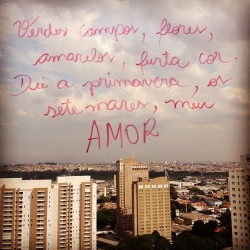 Verdes campos, flores,
amarelos, furta cor.
Dei a primavera, os
sete mares, meu
AMOR